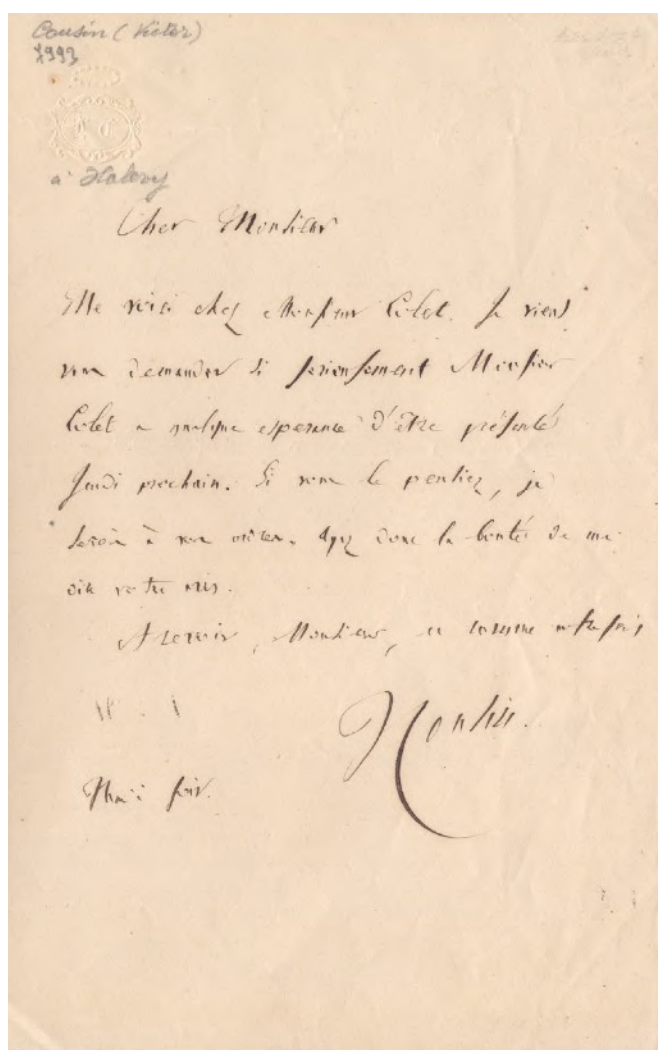 Cousin (Victor)
7993
à Halevy
Cher Monsieur
Me voici chez Monsieur Colet. Je viens
vous demander si serieusement Monsieur
Colet a quelque esperance d'être présenté
Jeudi prochain. Si vous le pensiez, je
serai à vos ordres. Ayez donc la bonté de me
dire votre avis.
A revoir, Monsieur,
V Cousin.
soir.